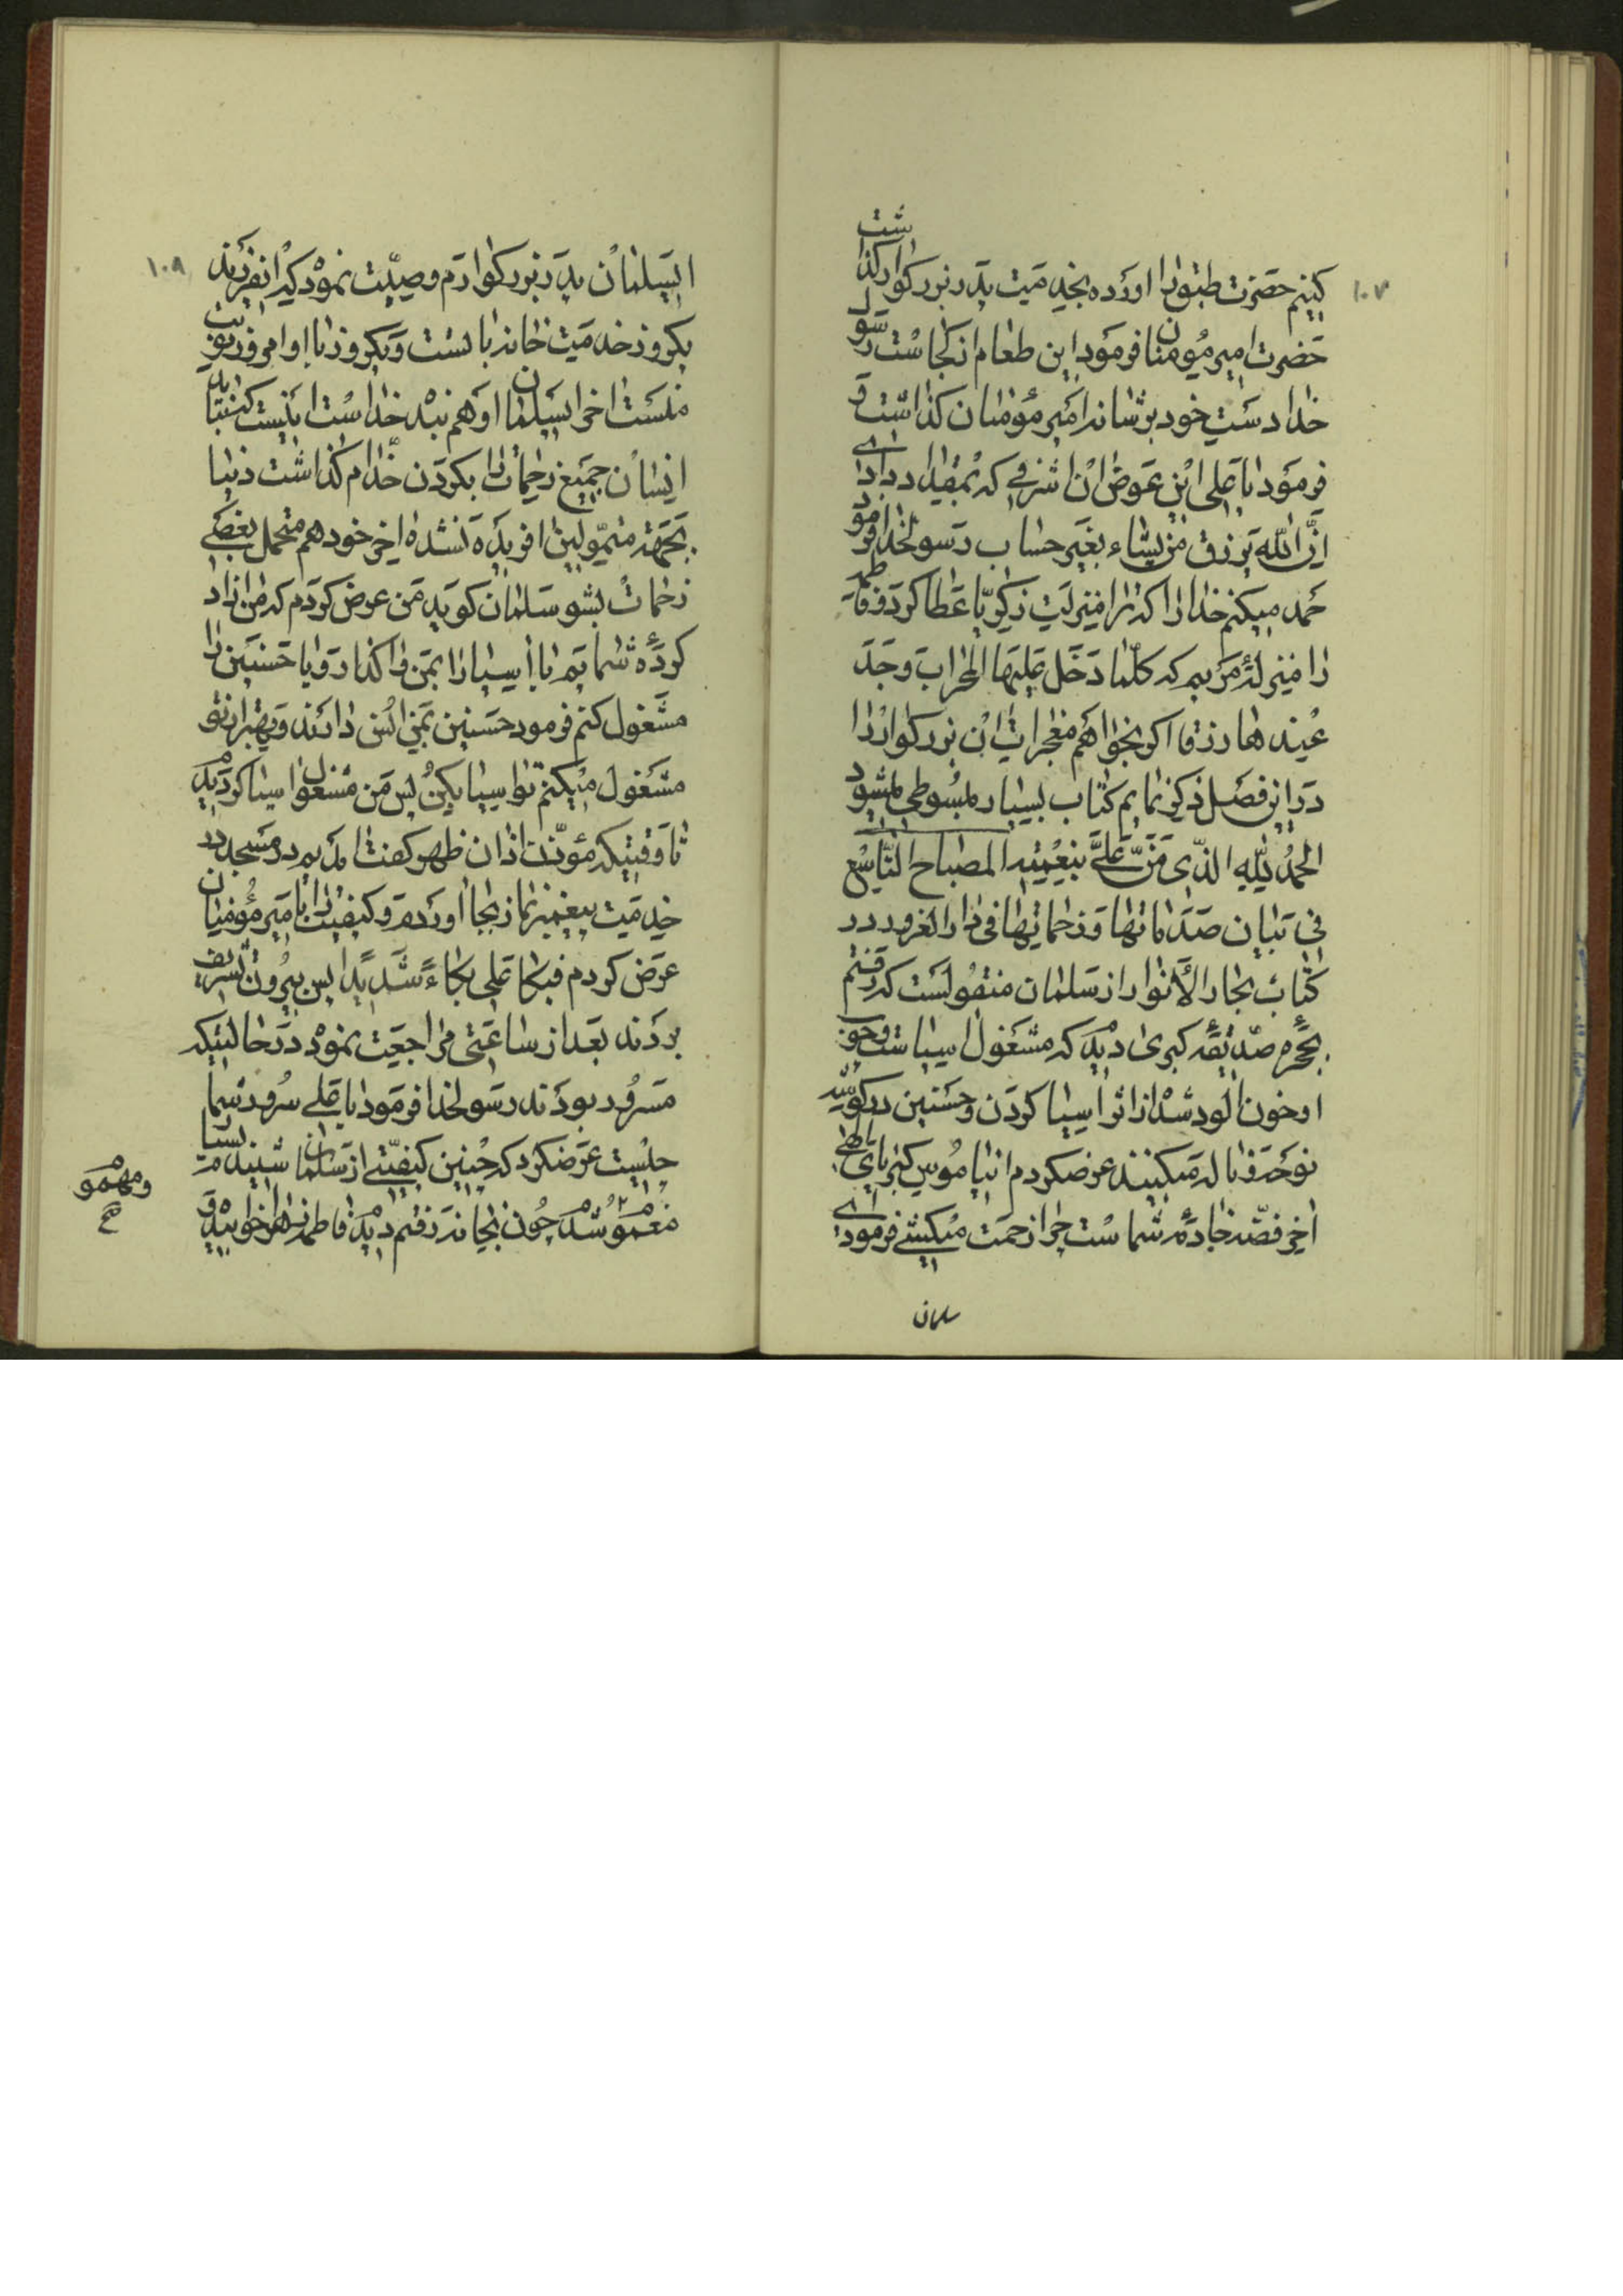 ۱۰۷
کنیم حضرت طبق را اورده بخدمت پدر بزرکوار کذاشت
حضرت امیر مؤمنان فرمود این طعام از کجاست رسول
خدا دست خود بر شانه امیر مؤمنان کذاشت و
فرمود یا علی این عوض ان اشرفی که بمقداد دادی
انّ الله یرزق من یشاء بغیر حساب رسولخدا فرمود
حمد میکنم خدا را که ترا منزلت زکریّا عطا کرد و فاطمه
را منزلهٔ مریم که کلّما دخل علیها المحراب وجد
عندها رزقا اکر بخواهم معجزات این بزرکوار را
در این فصل ذکر نمایم کتاب بسیار مبسوطی میشود
الحمدُ للّهِ الذّی مَنّ علیَّ بنعمته المصباح التّاسع
فی بیان صدماتها و زحماتها فی دار الغرور در
کتاب بحار الأنوار از سلمان منقولست که رفتم
بحجرهٔ صدّیقهٔ کبری دیدم که مشغول اسیاست و خون
او خون الود شده از اثر اسیا کردن و حسنین در کوشهٔ
نوحه و ناله میکنند عرضکردم انیا موس کبریای الهی
اخر فضّه خادمهٔ شماست چرا زحمت میکشی فرمود
سلمان
۱۰۸
ایسلمان پدر بزرکوارم وصیّت نموده که انفرید
یکروز خدمت خانه با تست و یکروز با او امروز نوبت
منست اخر ایسلمان او هم بنده خداست این نیست که نباید
ایشان جمیع زحمات را بکردن خدّام کذاشت دنیا
بجهة متموّلین افریده نشده اخر خود هم متحمل بعضی
زحمات بشو سلمان کوید من عرض کردم که من ازاد
کردهٔ شمایم یا اسیا را بمن واکذارد و یا حسنین را
مشغول کنم فرمود حسنین بمن انس دارند و بهتر انها را
مشغول میکنم تو اسیا بکن پس من مشغول اسیا کردیدم
تا وقتیکه مؤذّن اذان ظهر کفت امدیم در مسجد در
خدمت پیغمبر نماز بجا اورده و کیفیت را با میر مؤمنان
عرض کردم فبکا علی بکاءً شدیداً پس بیرون تشریف
بردند بعد از ساعتی مراجعت نمود در حالتیکه
مسرور بودند رسولخدا فرمود یا علی سرور شما
چیست عرضکرد که چنین کیفیّتی از سلمان شنیدم بسیا
مغموم شدم چون بخانه رفتم دیدم فاطمهٔ زهرا خوابیده و
و مهموم
صح